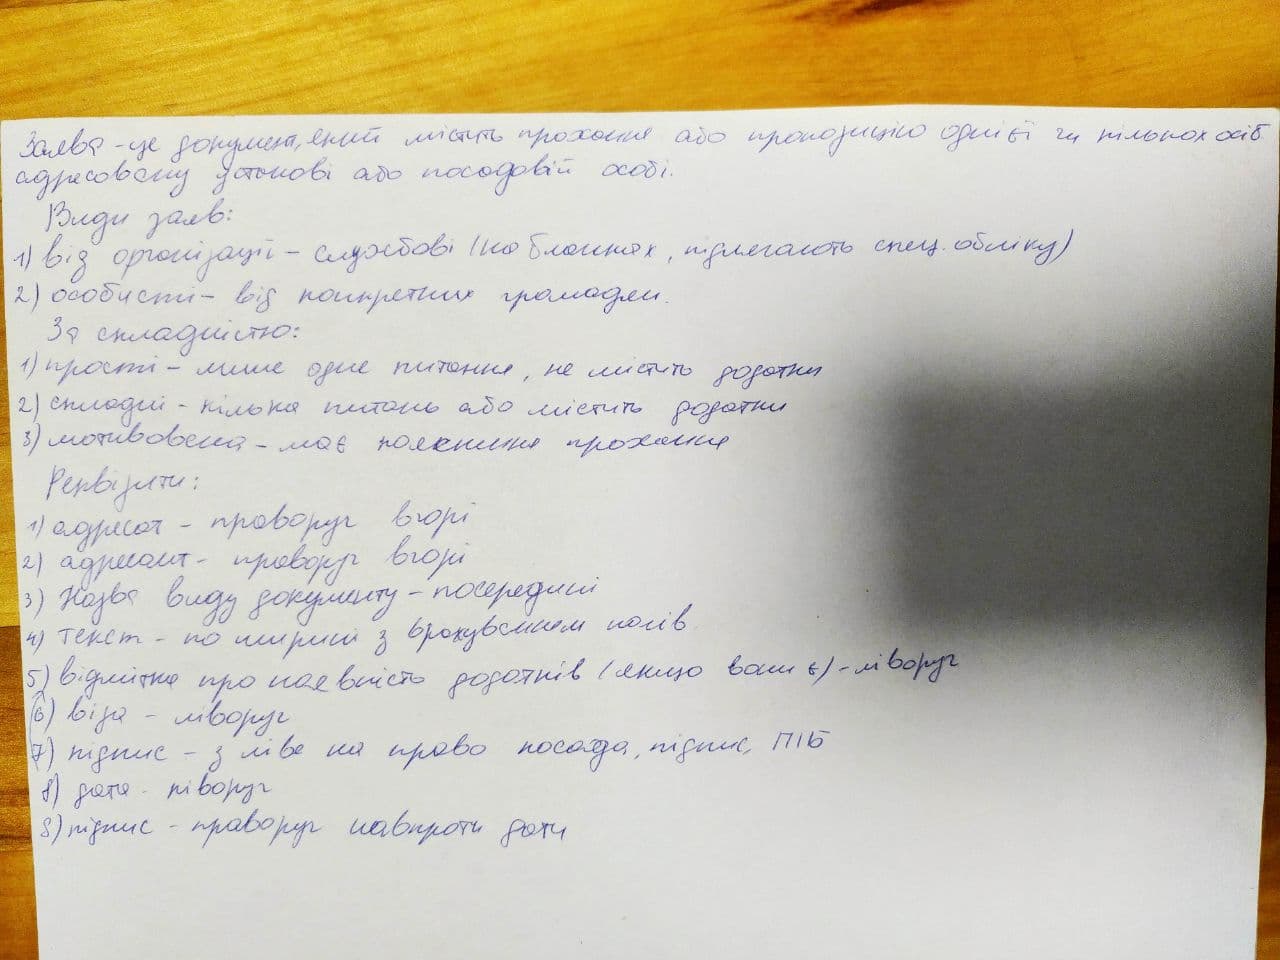 Заява - це документ, який містить прохання або пропозицію однієї чи кількох осіб
адресовану установі або посадовій особі.
Види заяв:
1) від організації - службові (на бланках, підлягають спец. обліку)
2) особисті - від конкретних громадян.
За складністю:
1) прості - лише одне питання, не містить додатки
2) складні - кілька питань або містить додатки
3) мотивована - має пояснення прохання
Реквізити:
1) адресат - праворуч вгорі
2) адресант - праворуч вгорі
3) Назва виду документу - посередині
4) текст - по ширині з врахуванням полів
5) відмітка про наявність додатків (якщо вони є) - ліворуч
6) віза - ліворуч
7) підпис - з ліва на право посада, підпис, ПІБ
8) дата - ліворуч
9) підпис - праворуч навпроти дати